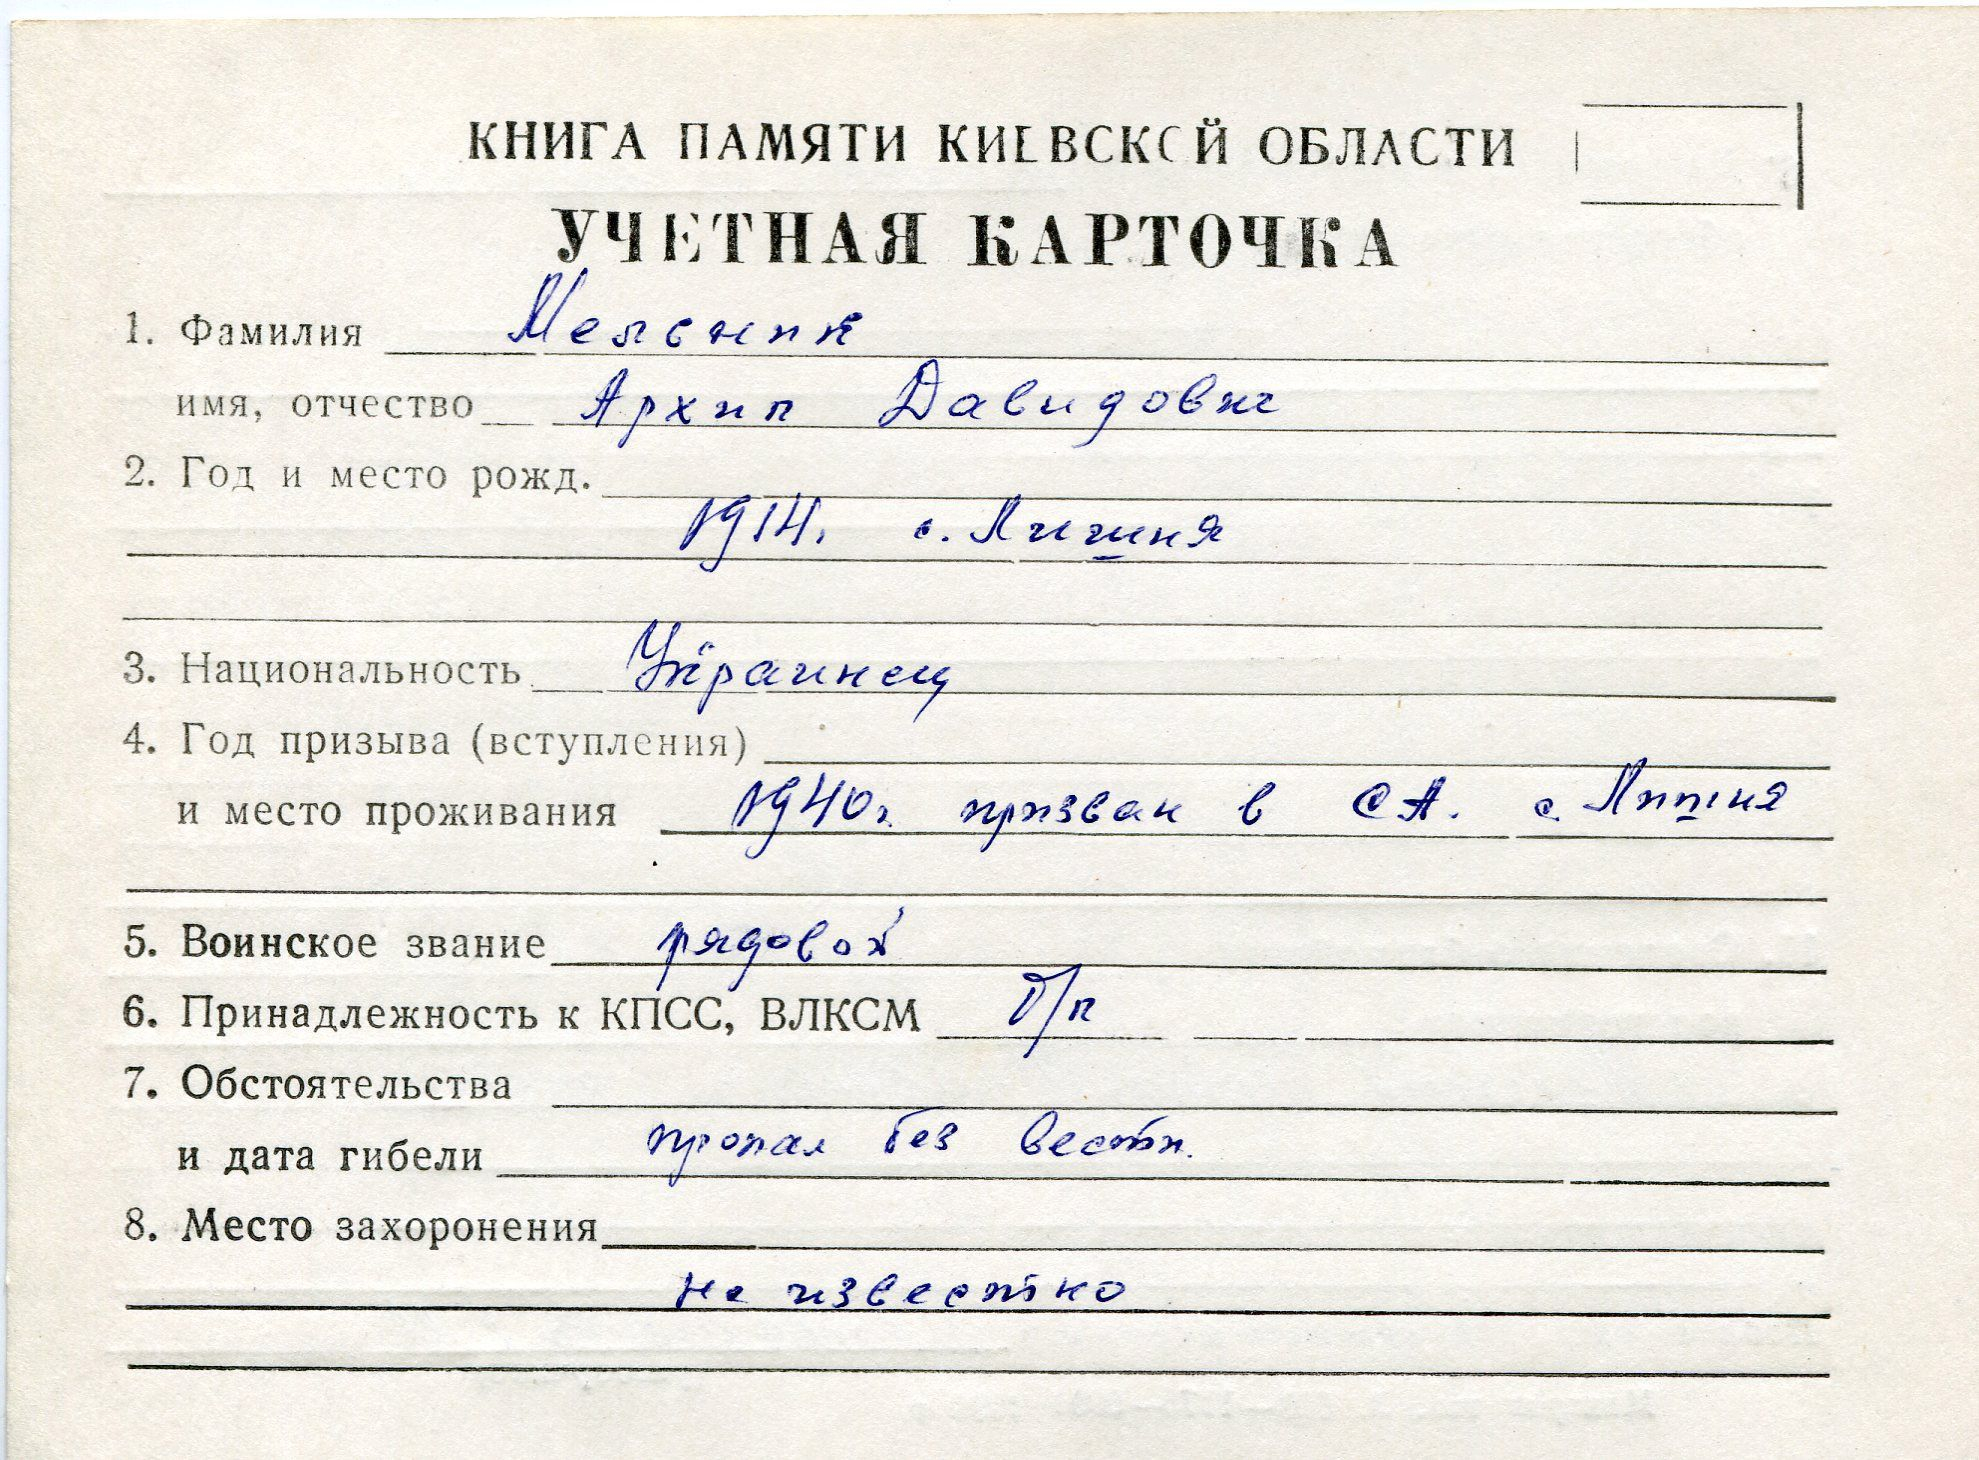 КНИГА ПАМЯТИ КИЕВСКОЙ ОБЛАСТИ
УЧЕТНАЯ КАРТОЧКА
1. Фамилия Мельник
имя, отчество Архип Давидович
2. Год и место рожд.
1914. с. Лишня
3. Национальность Украинец
4. Год призыва (вступления)
и место проживания 1940г. призван в СА. с. Лишня
5. Воинское звание рядовой
6. Принадлежность к КПСС, ВЛКСМ б/п
7. Обстоятельства
и дата гибели пропал без вести.
8. Место захоронения
не известно